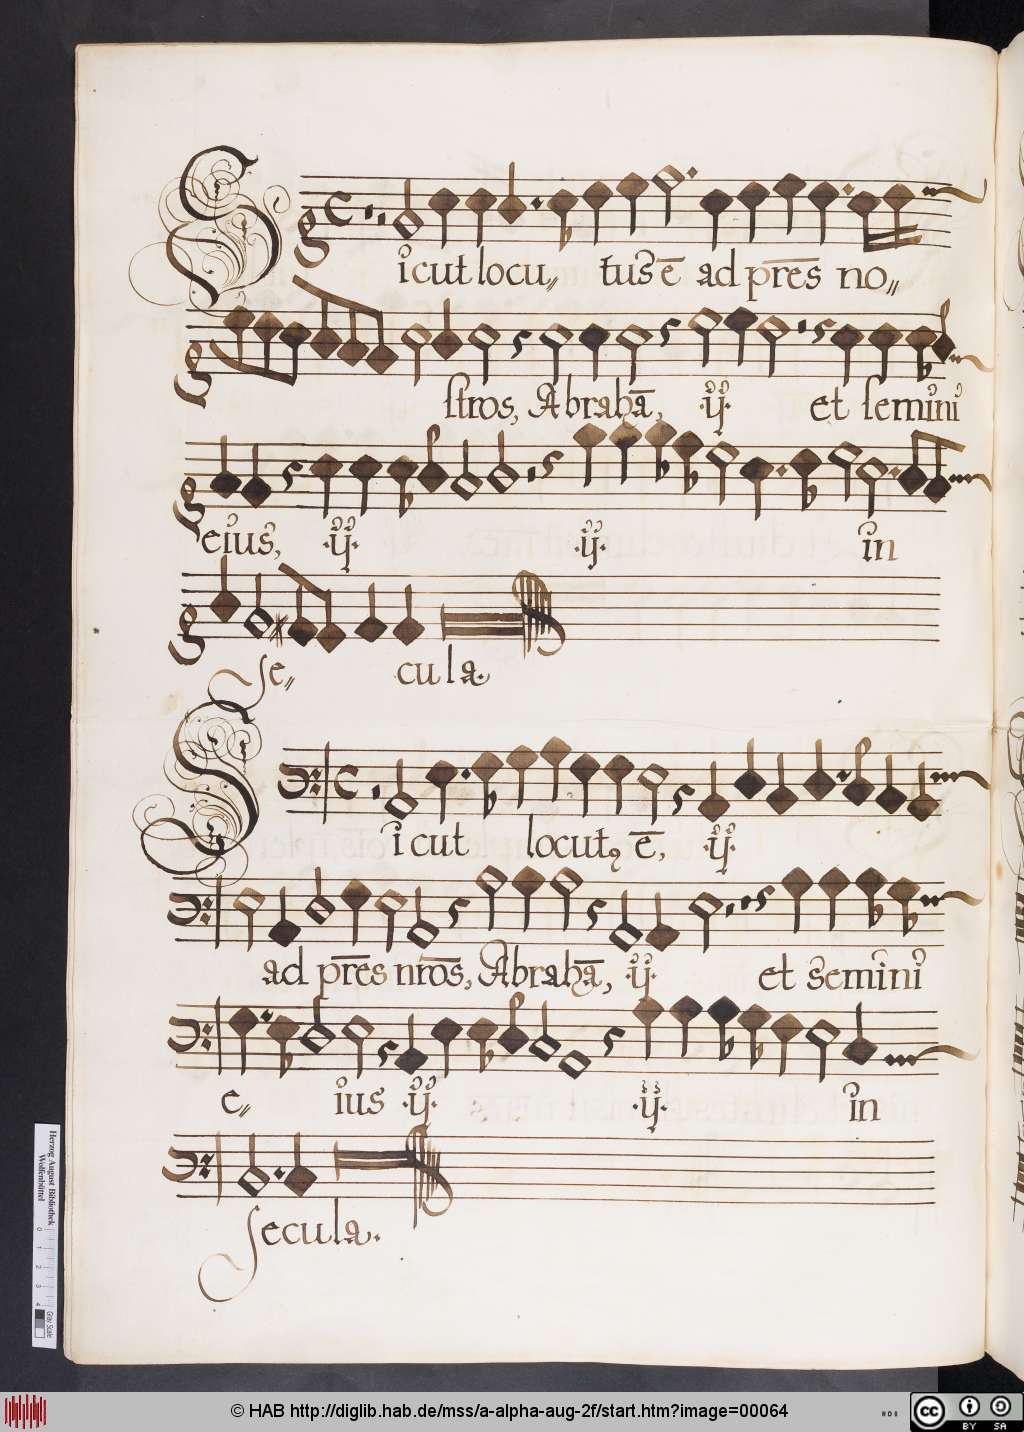 Sicut locu〃 tus ē ad pr̄es no〃
stros, Abrahā, ·ij· et semini
eius, ·ij· ·ij· in
se〃 cula.
Sicut locutꝰ ē, ·ij·
ad pr̄es nr̄os, Abrahā, ·ij· et semini
e〃 ius ·ij· ·ij· in
secula.
Herzog August Bibliothek
Wolfenbüttel
0 1 2 3 4
Gray Scale
© HAB http://diglib.hab.de/mss/a-alpha-aug-2f/start.htm?image=00064
cc BY SA